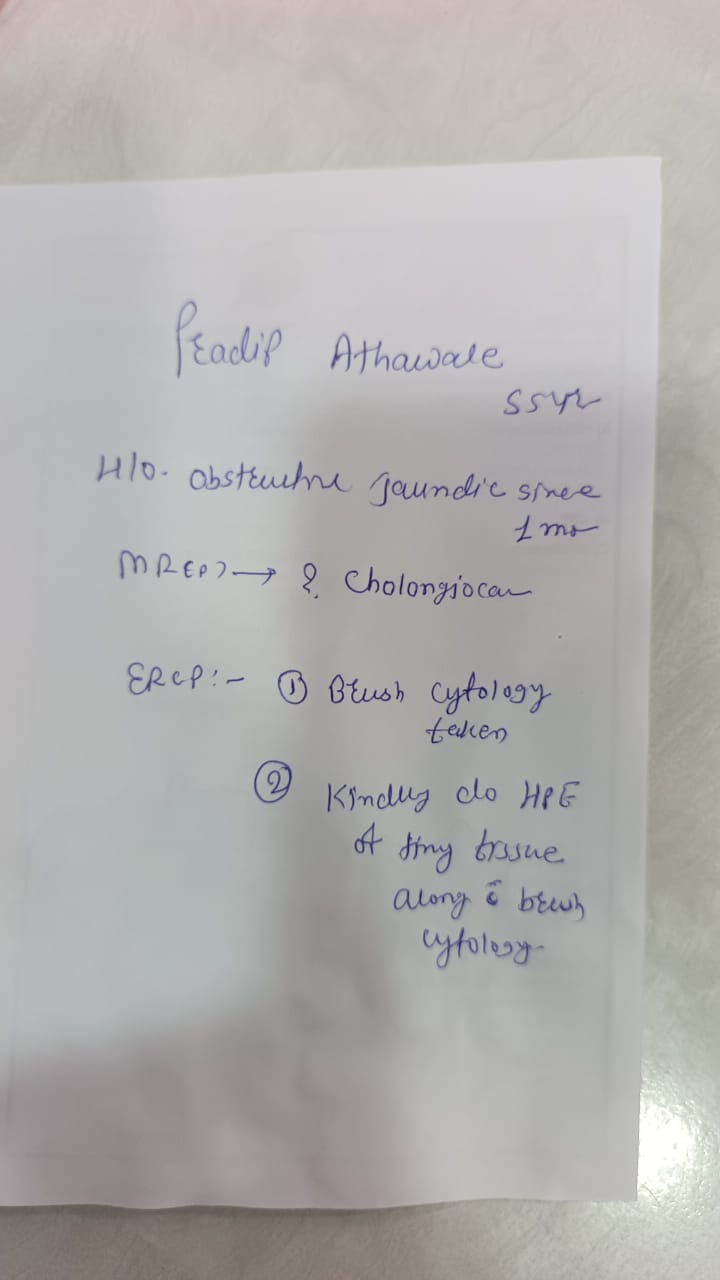 Pradip Athawale
55yr
H/O. Obstructive Jaundic since
1 mo
MRCP → ? Cholongiocar
ERCP:- ① Brush Cytology
taken
② Kindly do HPE
of tiny tissue
along c̄ brush
cytology